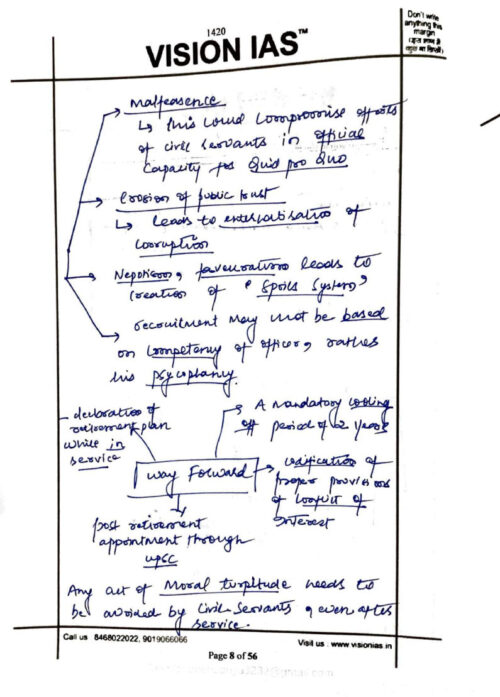 1420
VISION IAS™
Don't write
anything this
margin
(इस भाग में
कुछ ना लिखें)
Malfeasence
↳ This would compromise efforts
of civil servants in official
capacity for Quid pro Quo
Erosion of public trust
↳ leads to
corruption
Nepotism, leads to
creation of 'Spoils System'
recruitment may not be based
on competency of officer, rather
his psycophancy.
- declaration of
retirement plan
while in
service
A mandatory cooling
off period of 2 years
way Forward
codification of
proper provisions
of conflict of
Interest
post retirement
appointment through
UPSC
Any act of Moral turpitude needs to
be avoided by civil servants, even after
service.
Call us 8468022022, 9019066066
Visit us : www.visionias.in
Page 8 of 56